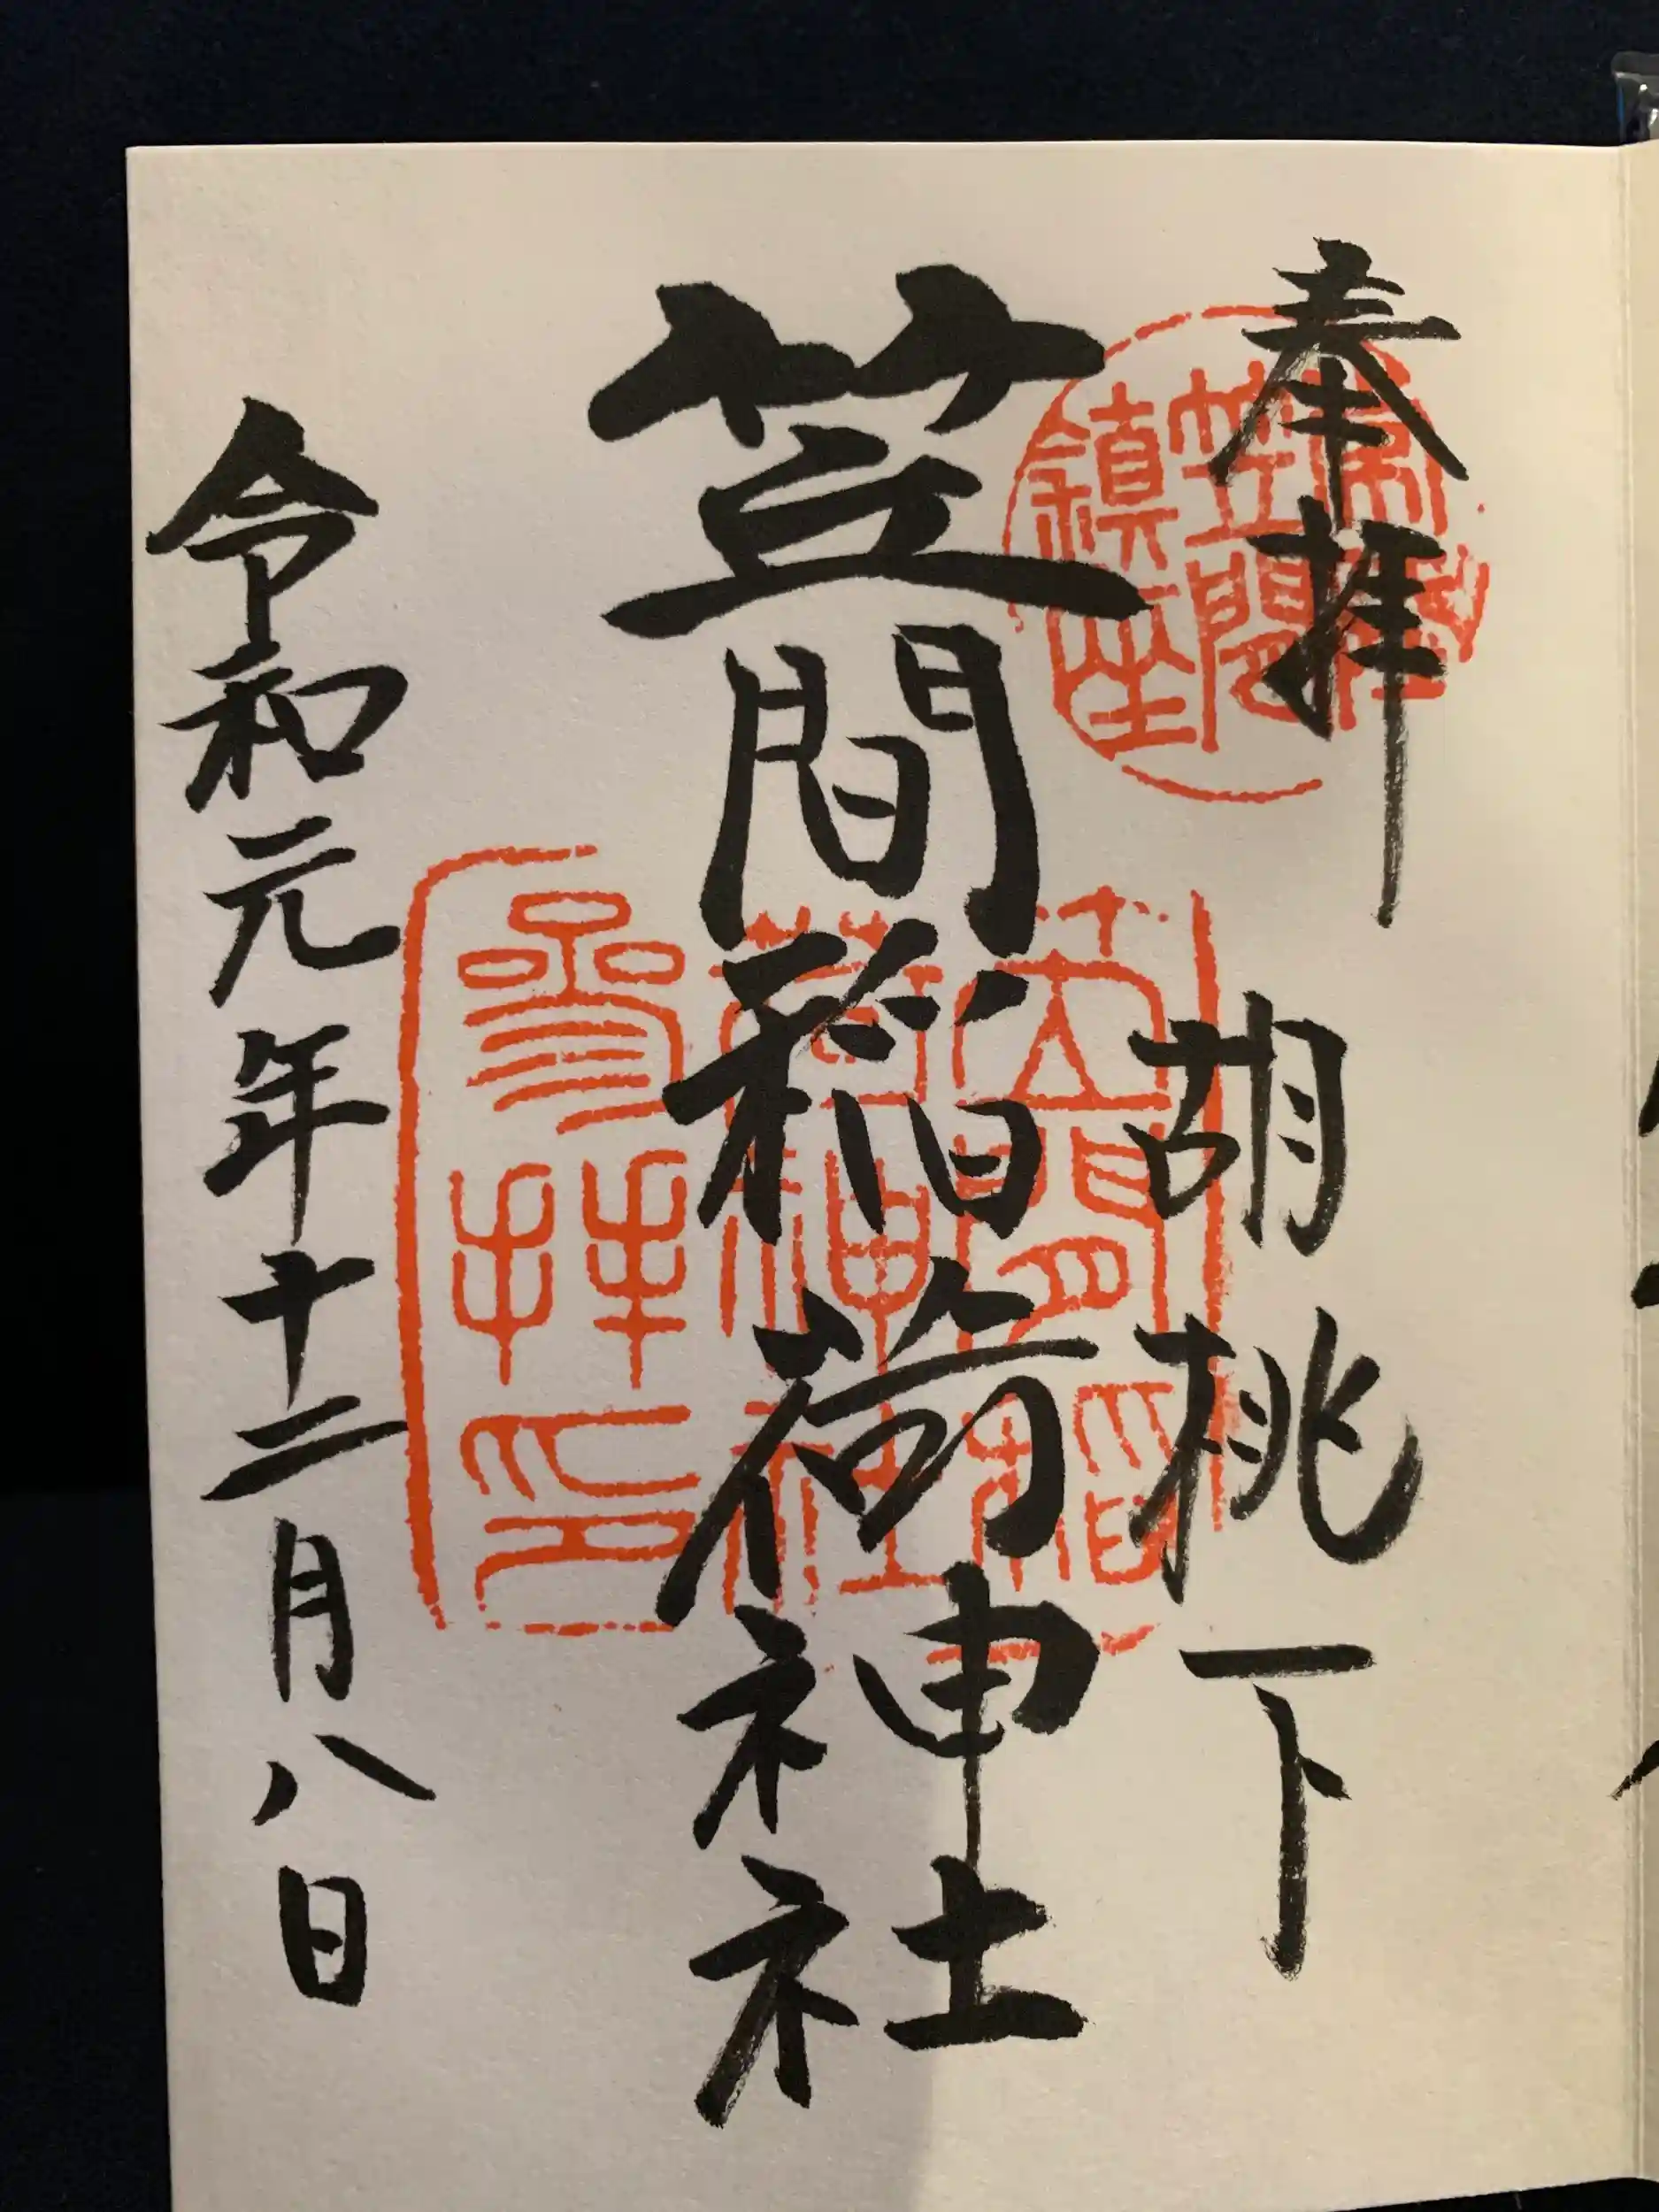 奉拝
胡桃下
笠間稲荷神社
令和元年十二月八日
常陸
笠間
鎮座
笠間稲
荷神社
参拝印